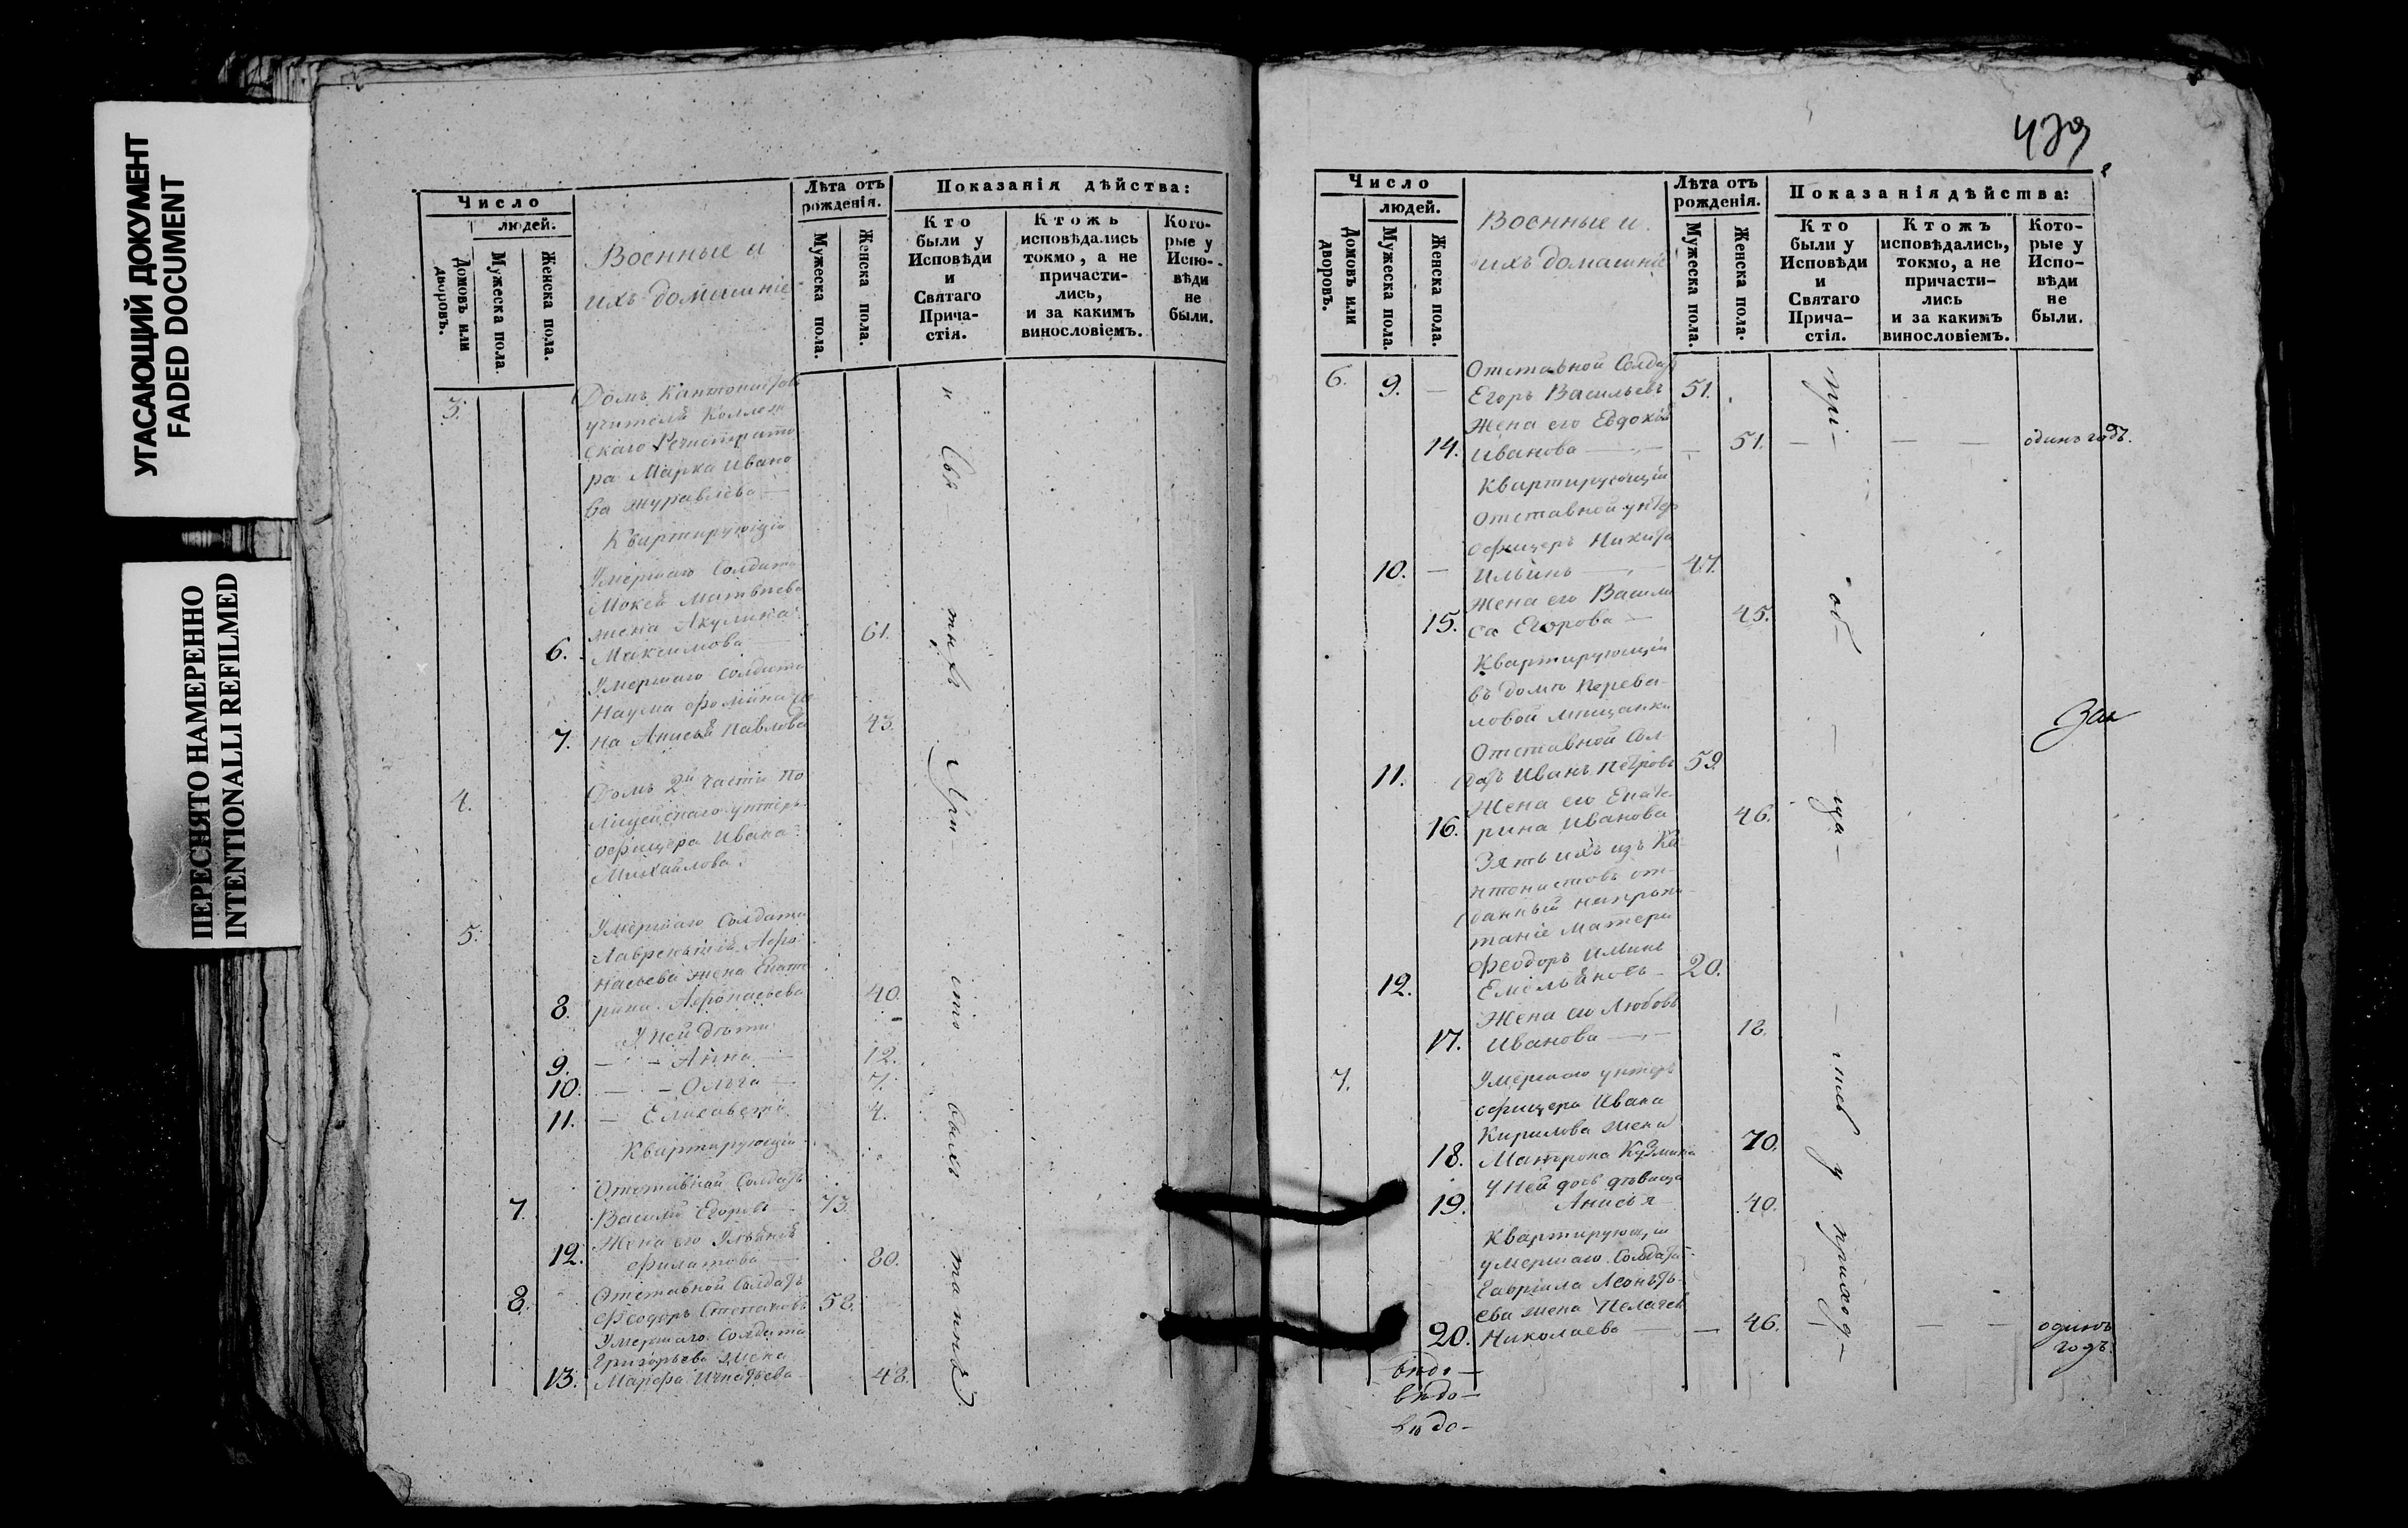 УГАСАЮЩИЙ ДОКУМЕНТ
FADED DOCUMENT
ПЕРЕСНЯТО НАМЕРЕННО
INTENTIONALLI REFILMED
Число
людей.
Домовъ или дворовъ.
Мужеска пола.
Женска пола.
Военные и
ихъ домашніе
Лѣта отъ рожденія.
Мужеска пола.
Женска пола.
Показанія дѣйства:
Кто были у Исповѣди и Святаго Прича-стія.
Ктожъ исповѣдались токмо, а не причасти-лись, и за какимъ винословіемъ.
Кото-рые у Испо-вѣди не были.
3.
Домъ Кантонистовъ
учителя Коллеж
скаго Регистрато
ра Марка Ивано
ва Журавлева —
Квартирующія
Умершаго Солдата
Мокея Матвѣева
жена Акулина
6. Максимова — 61.
Умершаго Солдата
Наума Фомина же
7. на Анисья Павлова 43.
4. Домъ 2й части По
лицейскаго унтеръ
офицера Ивана
Михайлова.
5. Умершаго Солдата
Лаврентія Афо
насьева жена Екате
8. рина Афонасьева 40.
У ней дѣти
9. — — Анна — 12.
10. — — Ольга — 7.
11. — Елисавета 4.
Квартирующія
Отставной Солдатъ
7. Василій Егоровъ — 73.
Жена его Ульяна
12. Филатова — 80.
Отставной Солдатъ
8. Феодоръ Степановъ 58.
Умершаго Солдата
Григорьева жена
13. Марфа Игнатьева 48.
и Свя- тыхъ При-
были
439
Число
людей.
Домовъ или дворовъ.
Мужеска пола.
Женска пола.
Военные и
ихъ домашніе
Лѣта отъ рожденія.
Мужеска пола.
Женска пола.
Показанія дѣйства:
Кто были у Исповѣди и Святаго Прича-стія.
Ктожъ исповѣдались, токмо, а не причасти-лись и за какимъ винословіемъ.
Кото-рые у Испо-вѣди не были.
Отставной Солдатъ
6. 9. — Егоръ Васильевъ 51.
Жена его Евдокія
14. Иванова — — 51. — — — одинъ годъ.
Квартирующіи
Отставной унтеръ
офицеръ Никита
10. — Ильинъ — 47.
Жена его Васили
15. са Егорова — 45.
Квартирующіи
въ домѣ Перева-
ловой мѣщанки
Отставной Сол-
11. датъ Иванъ Петровъ 59.
Жена его Екате-
16. рина Иванова 46.
Зять ихъ изъ Ка-
нтонистовъ от-
данный на пропи-
таніе матери
Феодоръ Ильинъ
12. Емельяновъ — 20.
Жена его Любовь
17. Иванова — 18.
7. Умершаго унтеръ
офицера Ивана
Кирилова жена
18. Матрона Кузмина 70.
У ней дочь дѣвица
19. Анисья 40.
Квартирующіи
умершаго Солдата
Гавріила Леонть-
ева жена Пелагея
20. Николаева — — 46. — — одинъ
годъ.
При-
у приход-